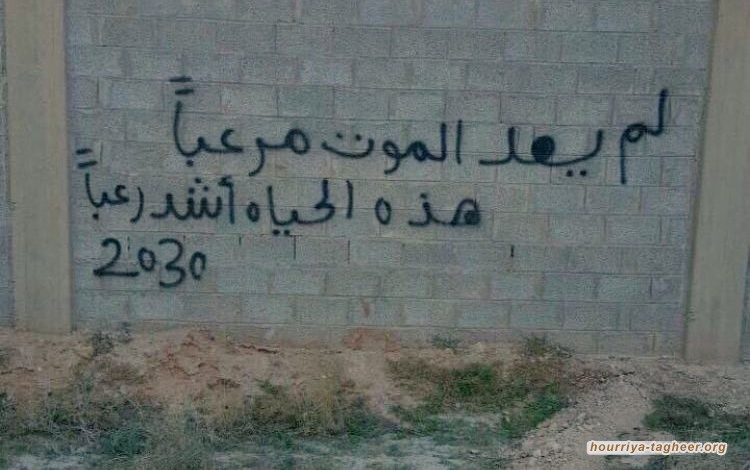 لم يعد الموت مرعباً
هذه الحياه أشد رعباً
2030
hourriya-tagheer.org